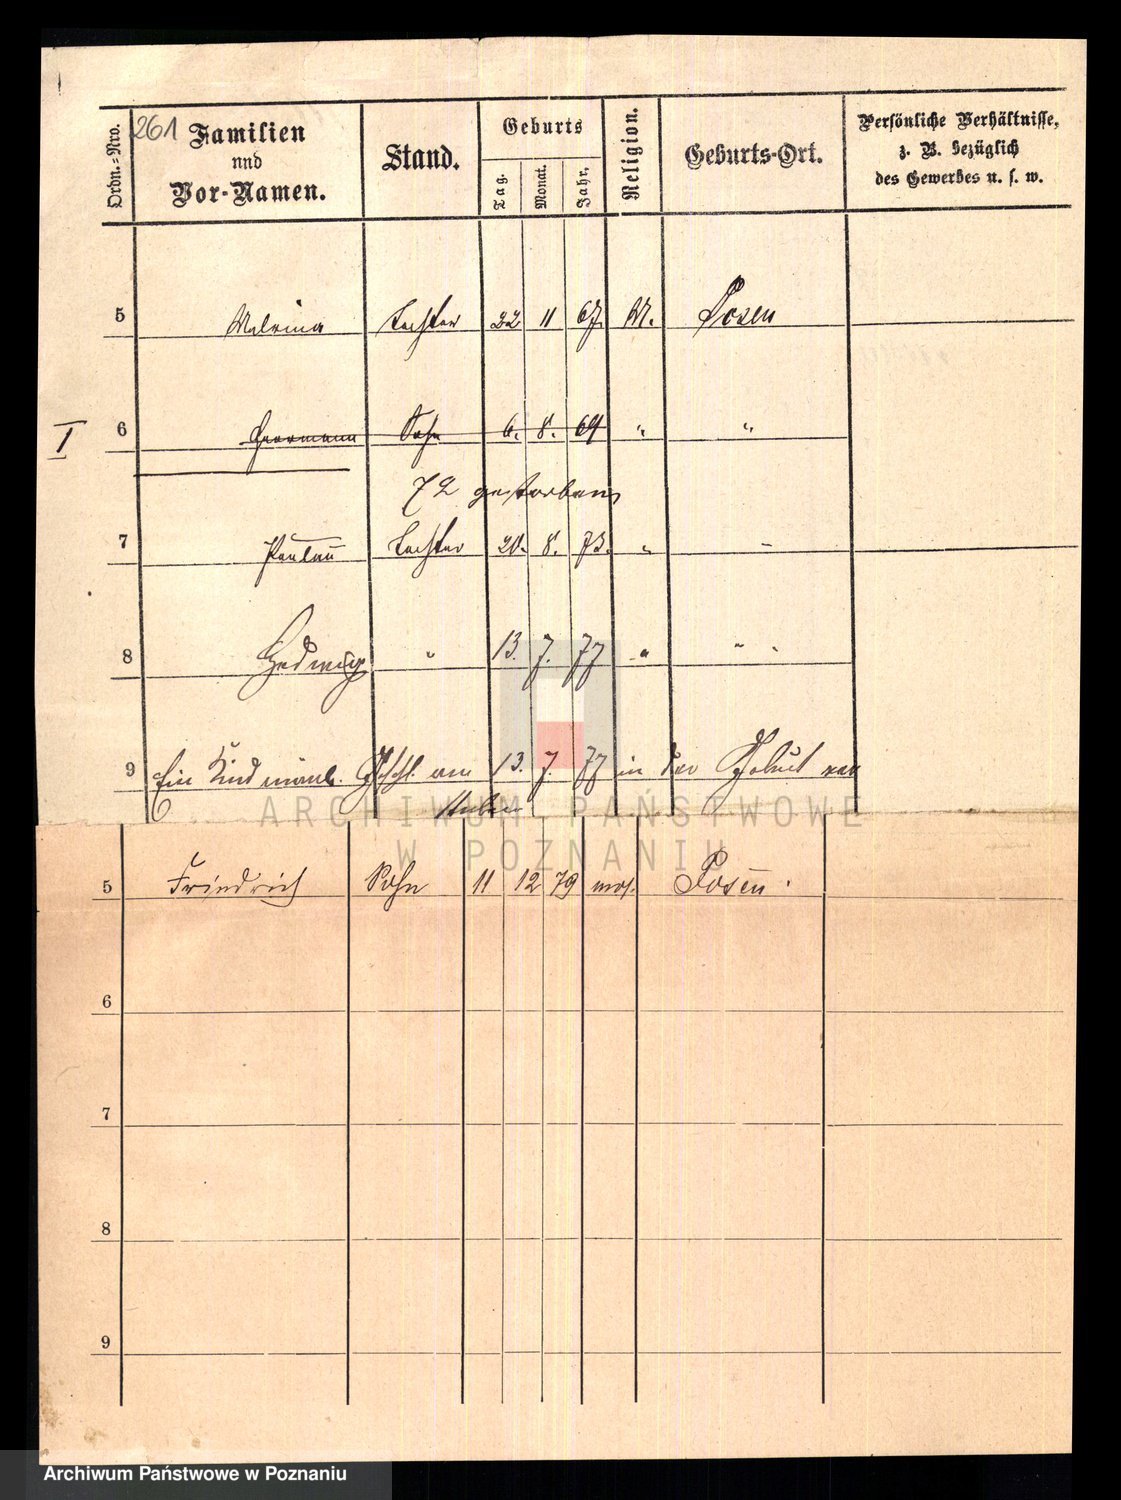 261
Ordn.-Nro. Familien und Vor-Namen. Stand. Geburts Tag. Monat. Jahr. Religion. Geburts-Ort. Persönliche Verhältnisse, z. B. bezüglich des Gewerbes u. s. w.
5 Malvina Tochter 22 11 67. M. Posen
I 6 Herrmann Sohn 6. 8. 69 " "
72 gestorben
7 Tochter 20. 8. 73. " "
8 Hedwig " 13. 7. 77 " "
9 Ein Kind männl. Geschl. am 13. 7. 77 in der Geburt ver
storben
5 Friedrich Sohn 11 12 79 mos. Posen.
6
7
8
9
ARCHIWUM PAŃSTWOWE
W POZNANIU
Archiwum Państwowe w Poznaniu